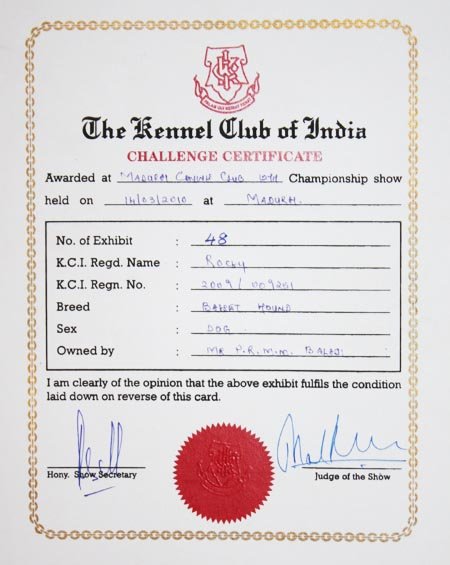 The Kennel Club of India
CHALLENGE CERTIFICATE
Awarded at MADURAI CANINE CLUB 10TH Championship show
held on 14/03/2010 at MADURAI.
No. of Exhibit : 48
K.C.I. Regd. Name : ROCKY
K.C.I. Regn. No. : 2009/009251
Breed : BASSET HOUND
Sex : DOG
Owned by : MR P.R.M.M. BALAJI
I am clearly of the opinion that the above exhibit fulfils the condition
laid down on reverse of this card.
Hony. Show Secretary Judge of the Show